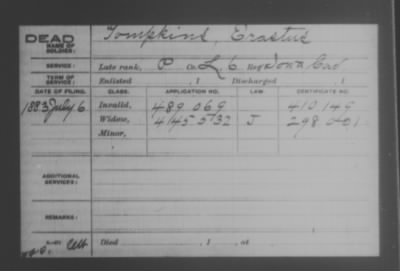 DEAD
NAME OF SOLDIER: Tompkins, Erastus
SERVICE: Late rank, P Co. L, 6 Reg't Iowa Cav
TERM OF SERVICE: Enlisted , 1 Discharged , 1
DATE OF FILING. CLASS. APPLICATION NO. LAW. CERTIFICATE NO.
1883 July 6 Invalid, 489 069 410 149
Widow, J
Minor,
ADDITIONAL SERVICES:
REMARKS:
Died , 1 , at